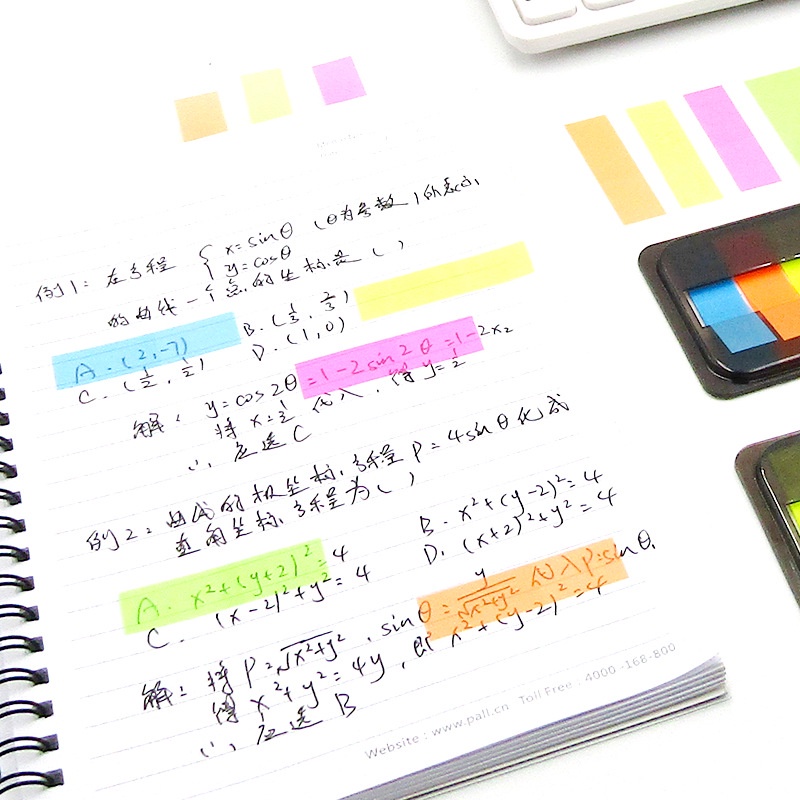 例1：在方程 { x=sinθ (θ为参数)所表示
y=cosθ
的曲线一个点的坐标是（ ）
A.(2,-7) B.(1/3, 2/3)
C.(1/2, 1/2) D.(1,0)
解：y=cos2θ=1-2sin2θ=1-2x2
将 x=1/2 代入，得 y=1/2
∴应选C
例2：曲线的极坐标方程 P=4sinθ化成
直角坐标方程为（ ）
A. x²+(y+2)²=4 B. x²+(y-2)²=4
C. (x-2)²+y²=4 D. (x+2)²+y²=4
解：将 P=√x²+y²，sinθ=y/√x²+y² 代入P=sinθ,
得 x²+y²=4y，即 x²+(y-2)²=4
∴应选 B
Website : www.pall.cn Toll Free 4000 -168-800